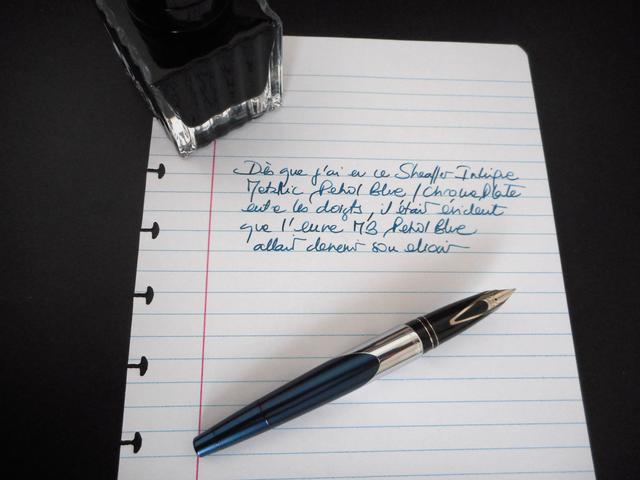 Dès que j'ai eu ce Sheaffer Intrigue
Metallic Petrol Blue / Chrome Plate
entre les doigts, il était évident
que l'encre MB Petrol Blue
allait devenir son elixir